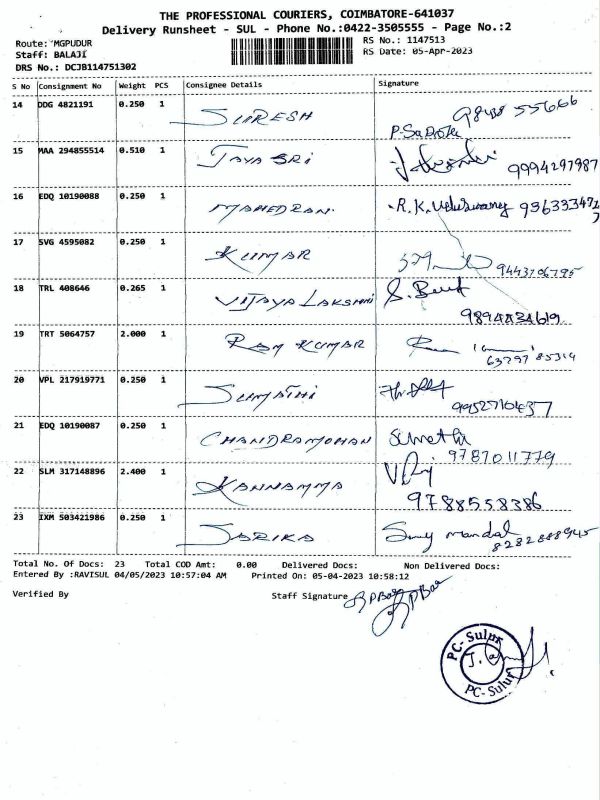 THE PROFESSIONAL COURIERS, COIMBATORE-641037
Delivery Runsheet - SUL - Phone No.:0422-3505555 - Page No.:2
Route: MGPUDUR
Staff: BALAJI
DRS No.: DCJB114751302
RS No.: 1147513
RS Date: 05-Apr-2023
S No Consignment No Weight PCS Consignee Details Signature
14 DDG 4821191 0.250 1 SURESH
15 MAA 294855514 0.510 1 JAYA SRI 9994297987
16 EDQ 10190088 0.250 1 MAHEDRAN R.K.
17 SVG 4595082 0.250 1 KUMAR 9443706795
18 TRL 408646 0.265 1 VIJAYA LAKSHMI S.
9894834619
19 TRT 5064757 2.000 1 RAM KUMAR
6379785314
20 VPL 217919771 0.250 1 SUMATHI
21 EDQ 10190087 0.250 1 CHANDRAMOHAN Sumathi
9787011779
22 SLM 317148896 2.400 1 KANNAMMA
9788558386
23 IXM 503421986 0.250 1 SARIKA mandal
8282888945
Total No. Of Docs: 23 Total COD Amt: 0.00 Delivered Docs: Non Delivered Docs:
Entered By :RAVISUL 04/05/2023 10:57:04 AM Printed On: 05-04-2023 10:58:12
Verified By Staff Signature
PC- Sulur
PC- Sulur